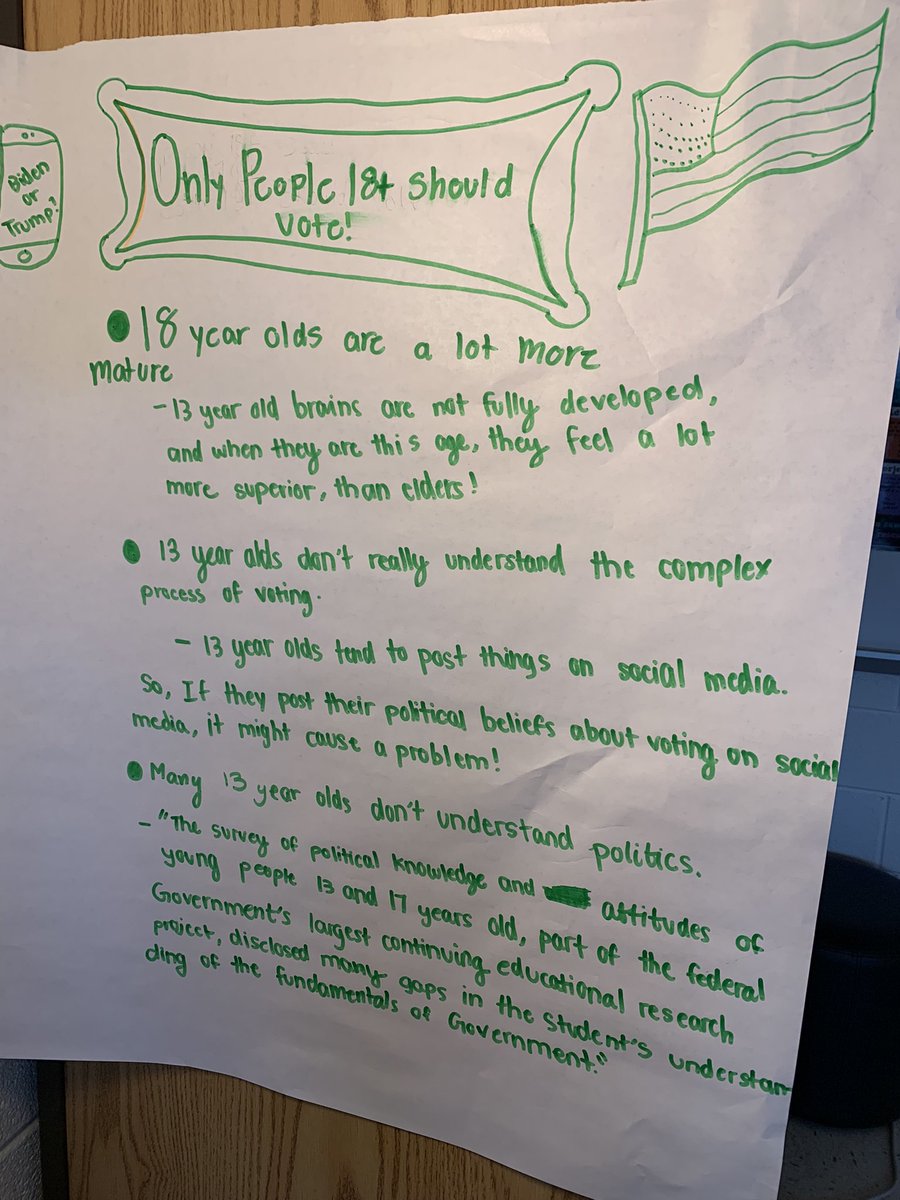 Biden
or
Trump?
Only People 18+ should
vote!
18 year olds are a lot more
mature
- 13 year old brains are not fully developed,
and when they are this age, they feel a lot
more superior, than elders!
13 year olds don't really understand the complex
process of voting.
- 13 year olds tend to post things on social media.
So, If they post their political beliefs about voting on social
media, it might cause a problem!
Many 13 year olds don't understand politics.
- "The survey of political knowledge and attitudes of
young people 13 and 17 years old, part of the federal
Government's largest continuing educational research
project, disclosed many gaps in the student's understan
ding of the fundamentals of Government."